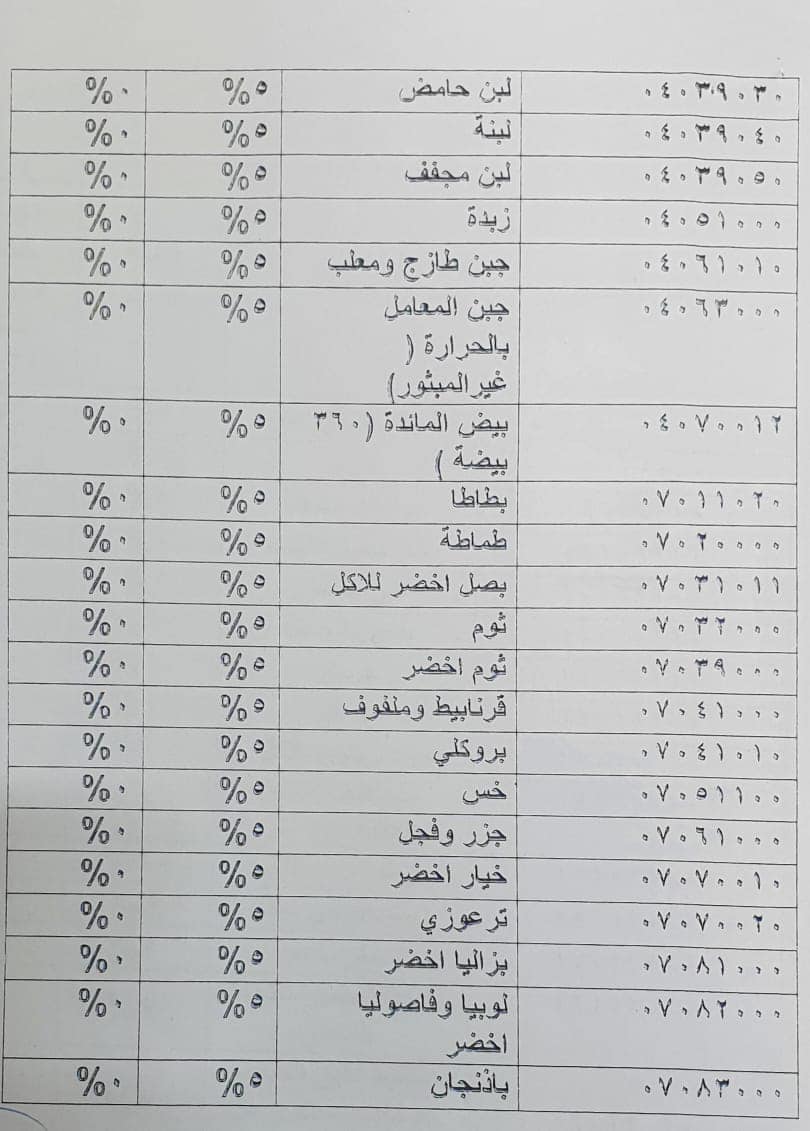 ٠٤٠٣٩٠٣٠ لبن حامض ٥% ٠%
٠٤٠٣٩٠٤٠ لبنة ٥% ٠%
٠٤٠٣٩٠٥٠ لبن مجفف ٥% ٠%
٠٤٠٥١٠٠٠ زبدة ٥% ٠%
٠٤٠٦١٠١٠ جبن طازج ومعلب ٥% ٠%
٠٤٠٦٣٠٠٠ جبن المعامل ٥% ٠%
بالحرارة (
غير المبثور)
٠٤٠٧٠٠١٢ بيض المائدة (٣٦٠ ٥% ٠%
بيضة )
٠٧٠١١٠٢٠ بطاطا ٥% ٠%
٠٧٠٢٠٠٠٠ طماطة ٥% ٠%
٠٧٠٣١٠١١ بصل اخضر للاكل ٥% ٠%
٠٧٠٣٢٠٠٠ ثوم ٥% ٠%
٠٧٠٣٩٠٠٠ ثوم اخضر ٥% ٠%
٠٧٠٤١٠٠٠ قرنابيط وملفوف ٥% ٠%
٠٧٠٤١٠١٠ بروكلي ٥% ٠%
٠٧٠٥١١٠٠ خس ٥% ٠%
٠٧٠٦١٠٠٠ جزر وفجل ٥% ٠%
٠٧٠٧٠٠١٠ خيار اخضر ٥% ٠%
٠٧٠٧٠٠٢٠ ترعوزي ٥% ٠%
٠٧٠٨١٠٠٠ بزاليا اخضر ٥% ٠%
٠٧٠٨٢٠٠٠ لوبيا وفاصوليا ٥% ٠%
اخضر
٠٧٠٨٣٠٠٠ باذنجان ٥% ٠%